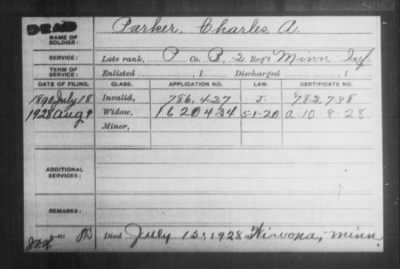 DEAD
NAME OF SOLDIER: Parker, Charles A.
SERVICE: Late rank, P Co. B, 2 Reg't Minn Inf.
TERM OF SERVICE: Enlisted , 1 Discharged , 1
DATE OF FILING. CLASS. APPLICATION NO. LAW. CERTIFICATE NO.
1890 July 18 Invalid, 786.427 J. 782.788
1928 Aug 9 Widow, 1620434 5-1-20 A-10-8-28
Minor,
ADDITIONAL SERVICES:
REMARKS:
Died July 12, 1928 Winona, Minn